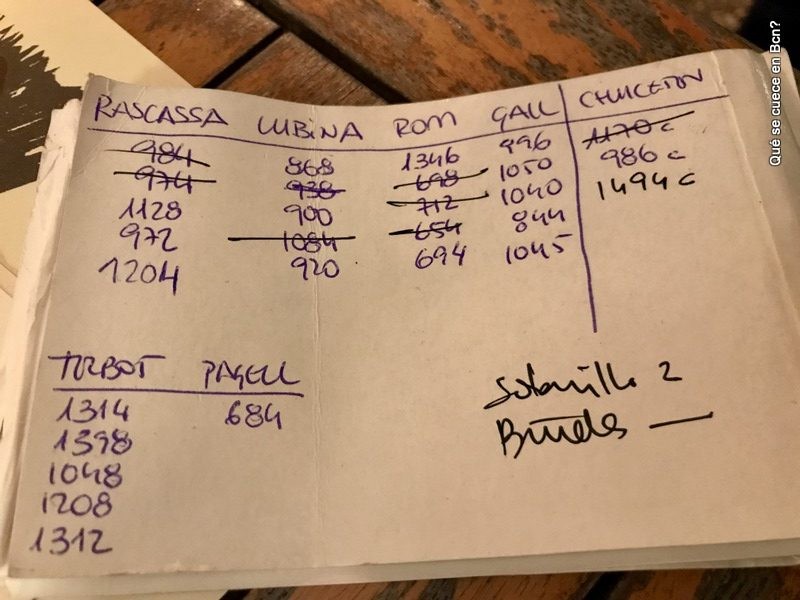 RASCASSA LUBINA ROM GALL CHULETON
984 868 1346 996 1170 c
974 938 698 1050 986 c
1128 900 712 1040 1494 c
972 1084 654 844
1204 920 694 1045
TURBOT PAGELL
1314 684
1398
1048
1208
1312
Solomillo 2
Qué se cuece en Bcn?